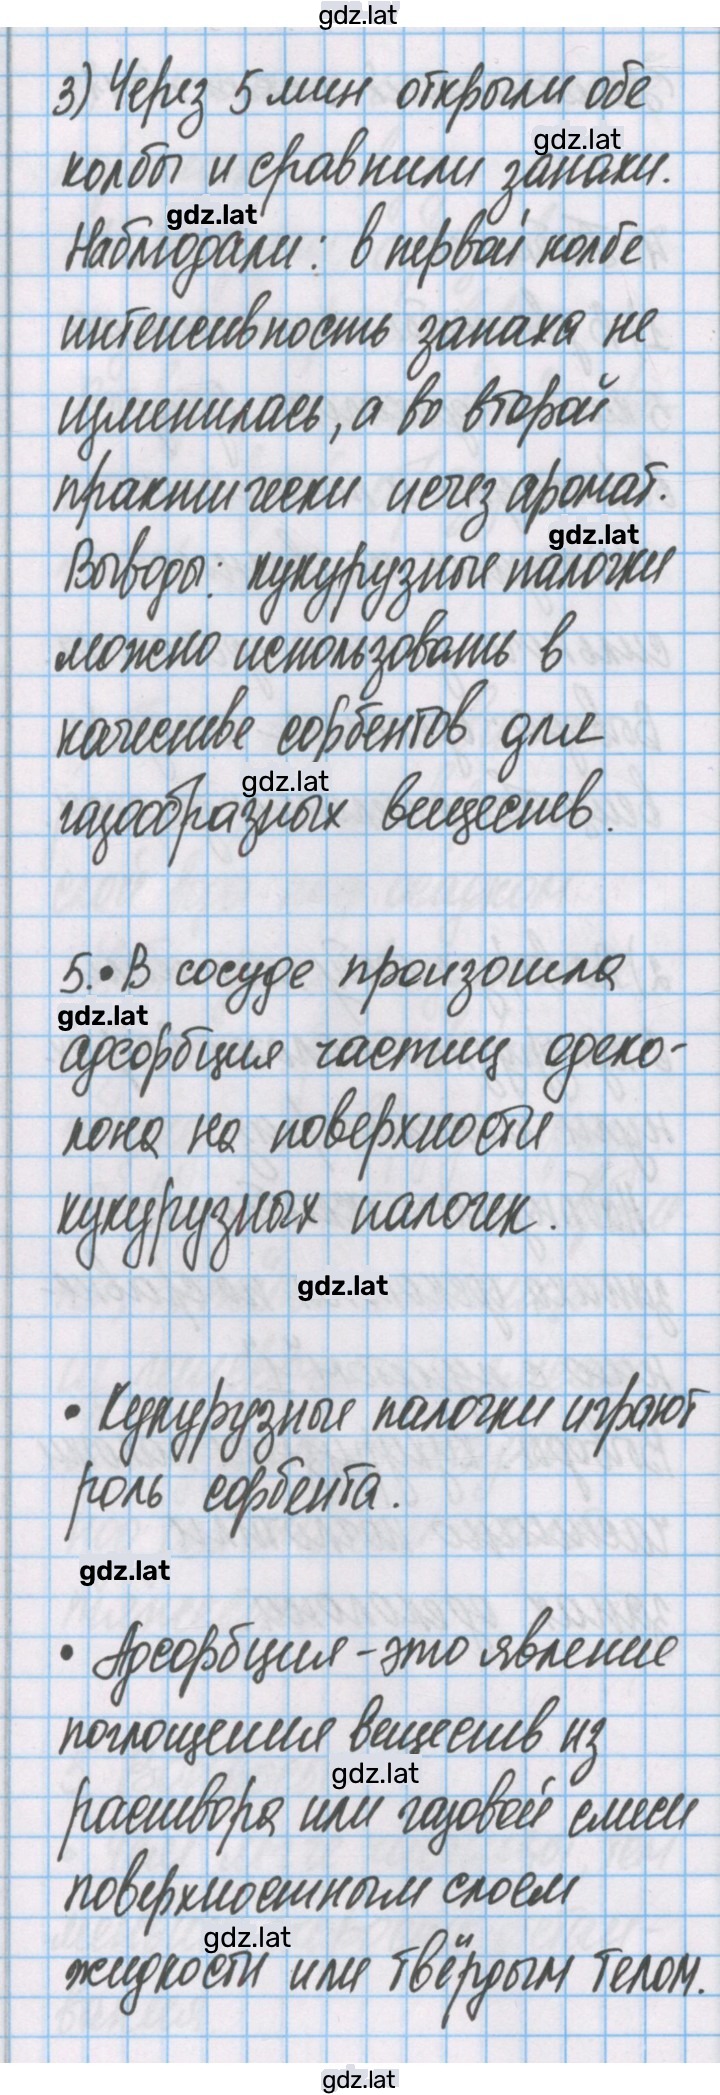 gdz.lat
3) Через 5 мин открыли обе
gdz.lat
колбы и сравнили запахи.
gdz.lat
Наблюдали: в первой колбе
интенсивность запаха не
изменилась, а во второй
практически исчез аромат.
gdz.lat
Выводы: кукурузные палочки
можно использовать в
качестве сорбентов для
gdz.lat
газообразных веществ.
5. • В сосуде произошла
gdz.lat
адсорбция частиц одеко-
лона на поверхности
кукурузных палочек.
gdz.lat
• Кукурузные палочки играют
роль сорбента.
gdz.lat
• Адсорбция - это явление
поглощения веществ из
gdz.lat
раствора или газовой смеси
поверхностным слоем
gdz.lat
жидкости или твёрдым телом.
gdz.lat